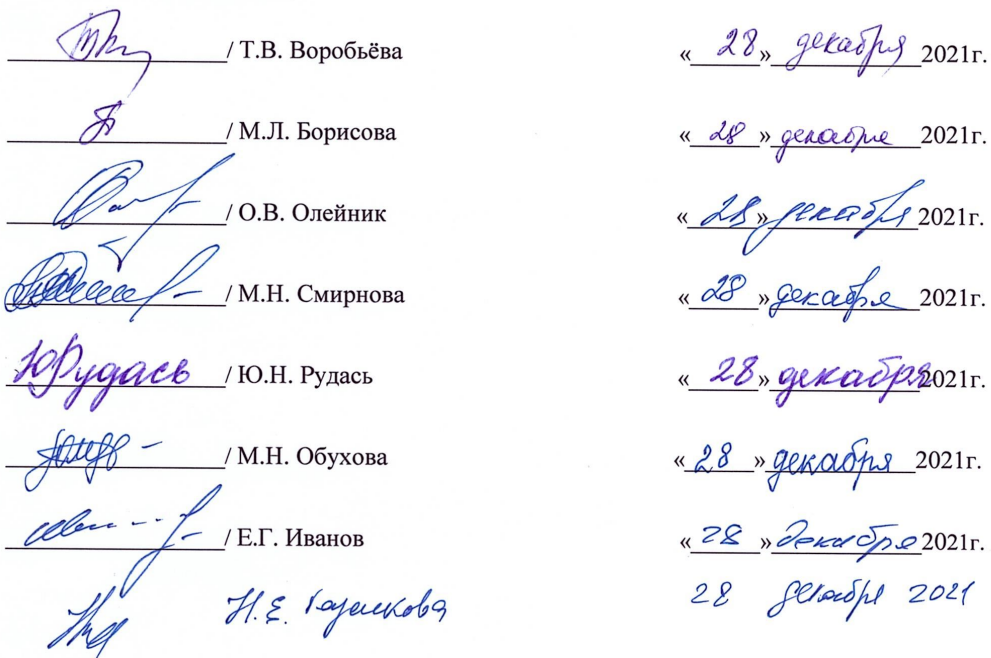 / Т.В. Воробьёва « 28 » декабря 2021г.
/ М.Л. Борисова « 28 » декабря 2021г.
/ О.В. Олейник « 28 » декабря 2021г.
/ М.Н. Смирнова « 28 » декабря 2021г.
ЮРудась / Ю.Н. Рудась « 28 » декабря 2021г.
/ М.Н. Обухова « 28 » декабря 2021г.
/ Е.Г. Иванов « 28 » декабря 2021г.
Н.Е. 28 декабря 2021